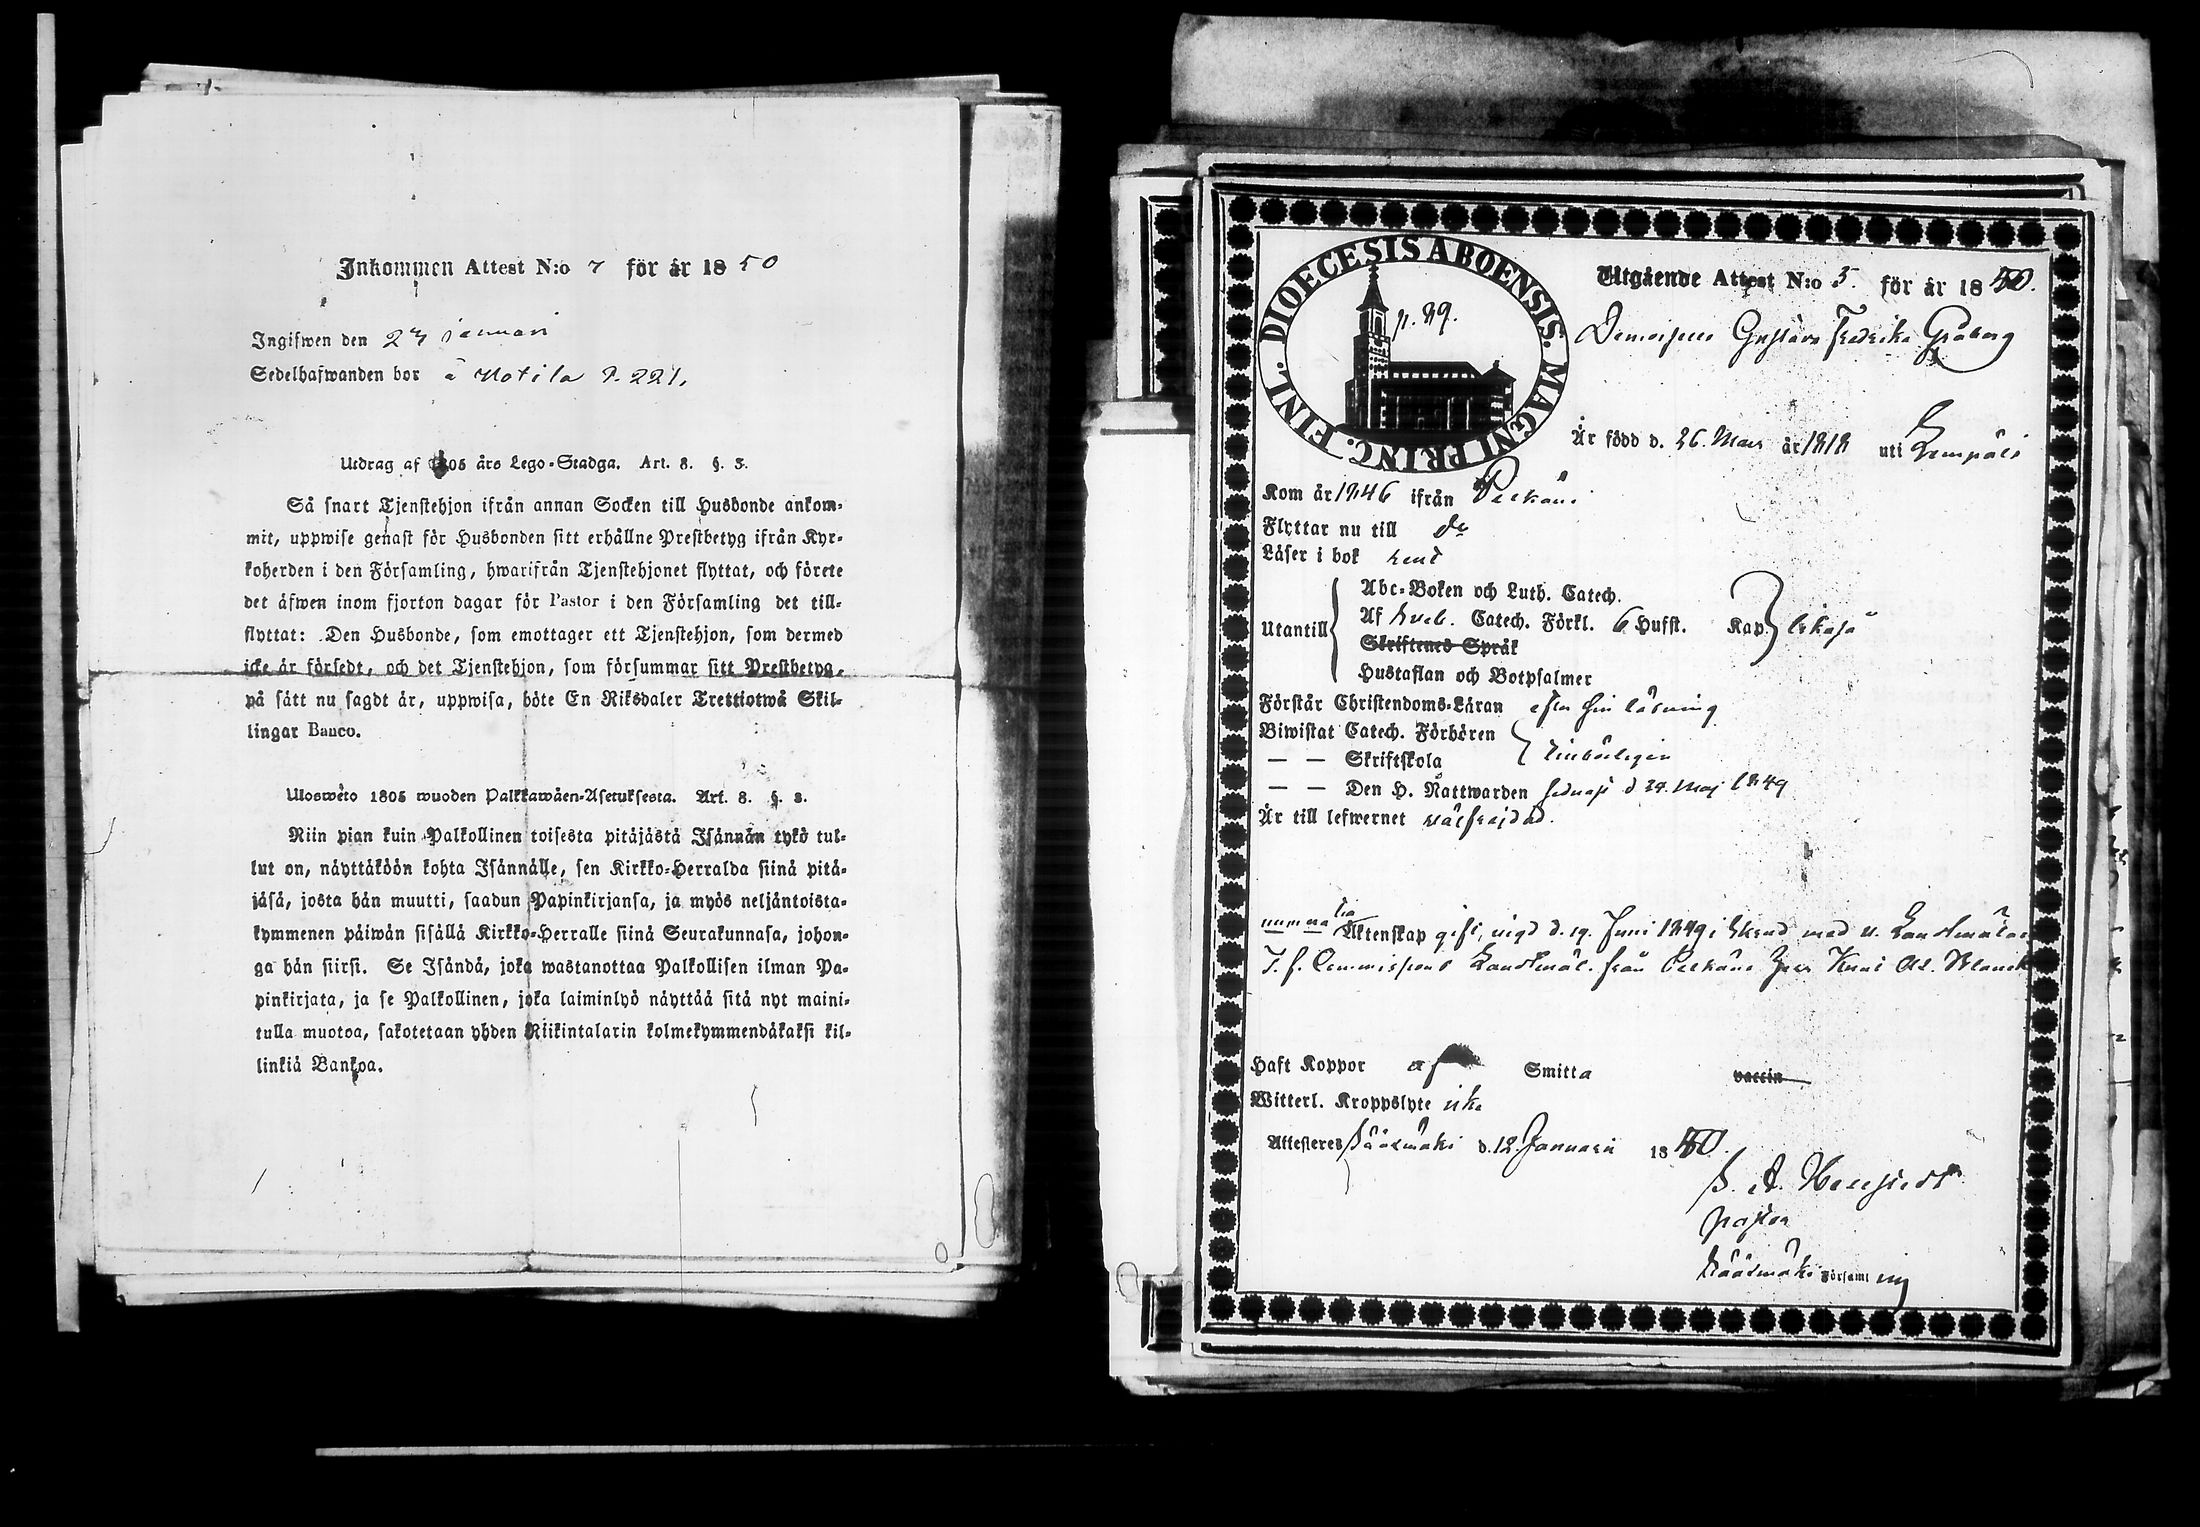 Inkommen Attest N:o 7 för år 1850
Ingifwen den 24 januari
Sedelhafwanden bor å Kotila P. 221.
Utdrag af 1805 års Lego-Stadga. Art. 8. §. 3.
Så snart Tjenstehjon ifrån annan Socken till Husbonde ankom-
mit, uppwise genast för Husbonden sitt erhållne Prestbetyg ifrån Kyr-
koherden i den Församling, hwarifrån Tjenstehjonet flyttat, och förete
det äfwen inom fjorton dagar för Pastor i den Församling det till-
flyttat: Den Husbonde, som emottager ett Tjenstehjon, som dermed
icke är försedt, och det Tjenstehjon, som försummar sitt Prestbetyg,
på sätt nu sagdt är, uppwisa, böte En Riksdaler Trettiotwå Skil-
lingar Banco.
Uloswèto 1805 wuoden Palkkawäen-Asetuksesta. Art. 8. §. 3.
Niin pian kuin Palkollinen toisesta pitäjästä Isännän tykö tul-
lut on, näyttäköön kohta Isännälle, sen Kirkko-Herralda siinä pitä-
jäsä, josta hän muutti, saadun Papinkirjansa, ja myös neljäntoista-
kymmenen päiwän sisällä Kirkko-Herralle siinä Seurakunnasa, johon-
ga hän siirsi. Se Isändä, joka wastanottaa Palkollisen ilman Pa-
pinkirjata, ja se Palkollinen, joka laiminlyö näyttää sitä nyt maini-
tulla muotoa, sakotetaan yhden Riikintalarin kolmekymmendäkaksi kil-
linkiä Bankoa.
DIOECESIS ABOENSIS. MAGNI PRINC. FINL.
p. 89.
Utgående Attest N:o 5. för år 1850.
Demoisell Gustava Fredrika Gråberg
Är född d. 26. Mars år 1818 uti Lempälä
Kom år 1846 ifrån Pelkäne
Flyttar nu till do
Läser i bok rent
Utantill
Abc-Boken och Luth. Catech.
Af Sveb. Catech. Förkl. 6 Hufst. Kap. likaså
Skriftenes Språk
Hustaflan och Botpsalmer
Förstår Christendoms-Läran efter sin läsning
Biwistat Catech. Förhören
— — Skriftskola
— — Den H. Nattwarden sednast d 24. Maj 1849
Är till lefwernet välfrejdad.
Äktenskap gift, vigd d. 19. Juni 1849 i med v. Landtmätar
T. f. Commissions Landtmät. från Pelkäne Herr Knut Ad. Blanck
Haft Koppor af Smitta vaccin
Witterl. Kroppslyte icke
Attesteres Sääksmäki d. 12 Januari 1850.
pastor
Sääksmäki Församl ing